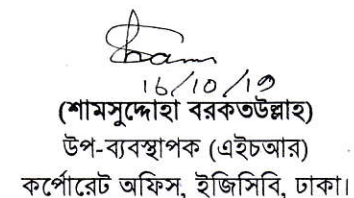 16/10/19
(শামসুদ্দোহা বরকতউল্লাহ)
উপ-ব্যবস্থাপক (এইচআর)
কর্পোরেট অফিস, ইজিসিবি, ঢাকা।